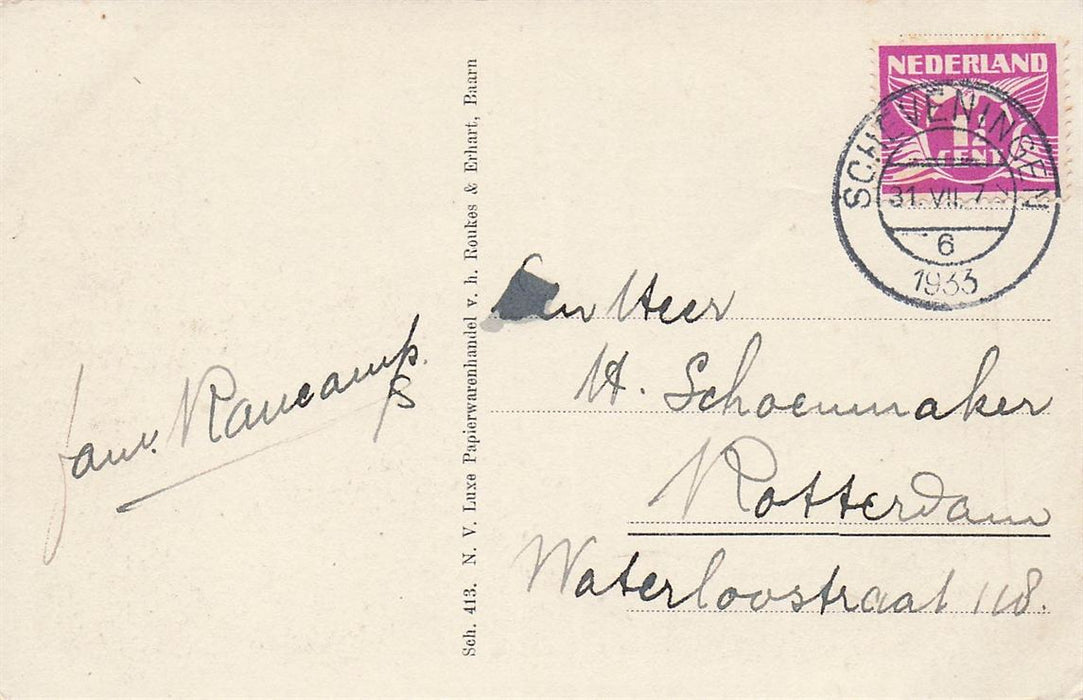 NEDERLAND
1½
CENT
SCHEVENINGEN
31. VII. 7 V
6
1933
Sch. 413. N. V. Luxe Papierwarenhandel v. h. Roukes & Erhart, Baarn
fam. Raucamp.
Den Heer
H. Schoenmaker
Rotterdam
Waterloostraat 118.